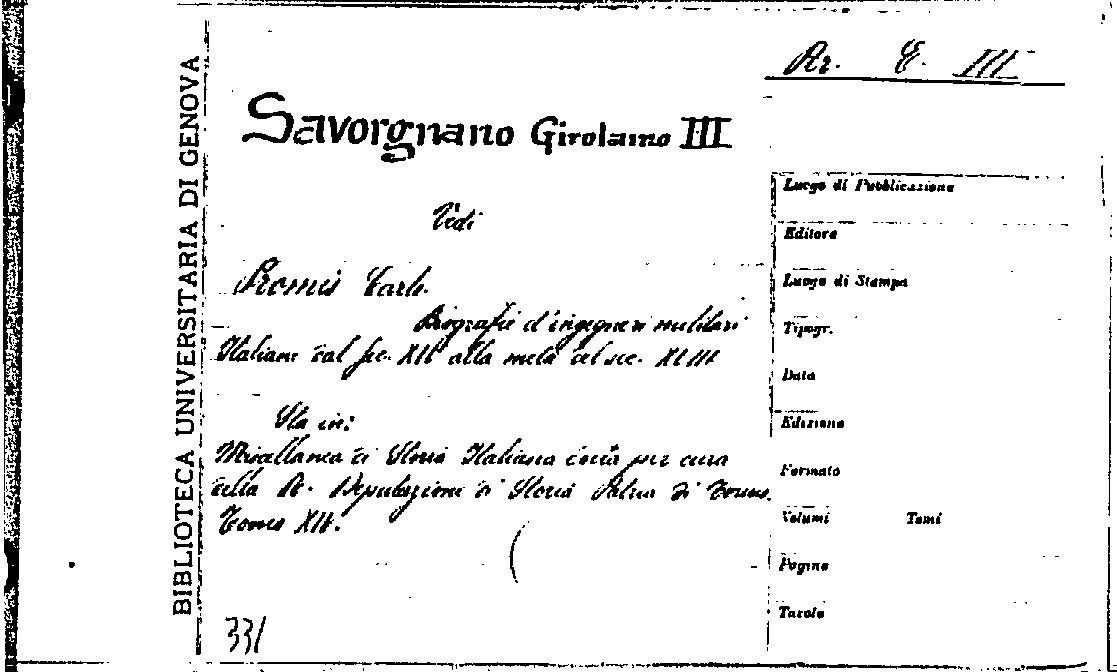 Ar. E. III
BIBLIOTECA UNIVERSITARIA DI GENOVA
Savorgnano Girolamo III
Vedi
Promis Carlo.
Biografie d'ingegneri militari
Italiani dal sec. XIV alla metà del sec. XVIII
Sta in:
Miscellanea di Storia Italiana edita per cura
della R. Deputazione di Storia Patria di Torino.
Tomo XIV.
331
Luogo di Pubblicazione
Editore
Luogo di Stampa
Tipogr.
Data
Edizione
Formato
Volumi Tomi
Pagine
Tavole